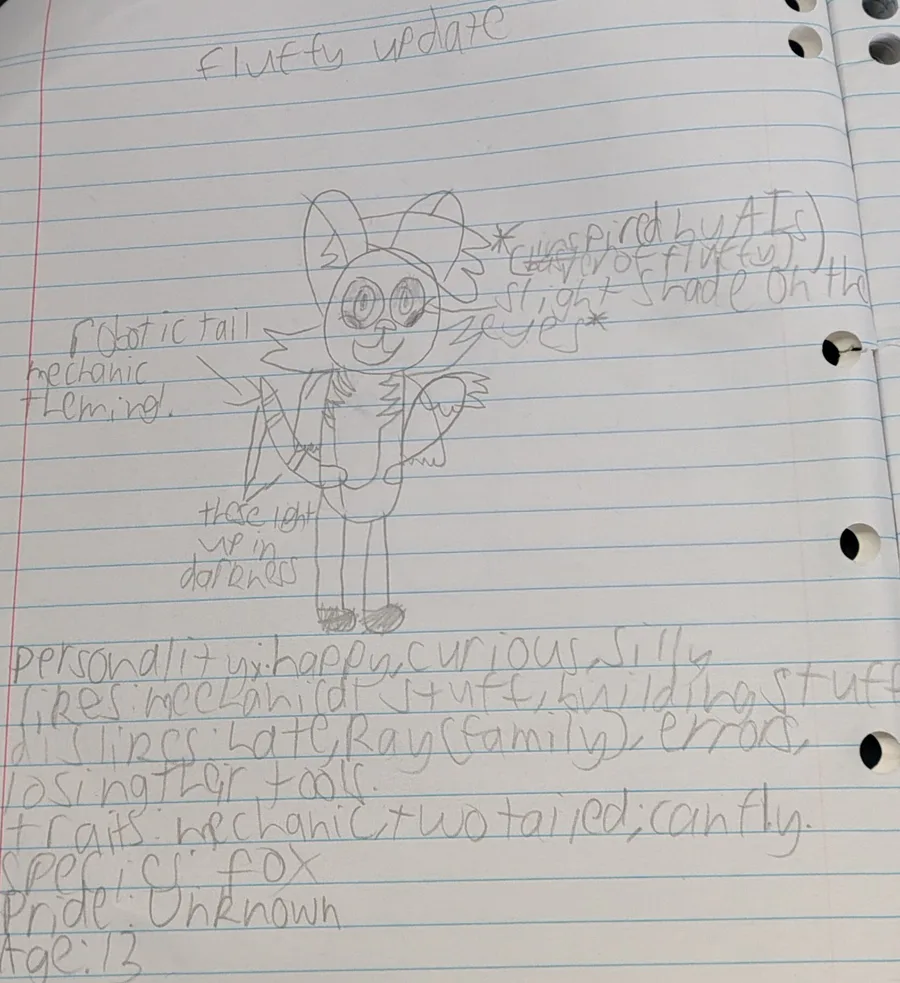 fluffy update
*(inspired by AIs)
ver of fluffy)
slight shade on the
eyes*
robotic tail
mechanic
theming.
these ight
up in
darkness
personality: happy, curious, silly
likes: mechanical stuff, building stuff
dislikes: hate, Ray (family), errors,
losing their tools.
traits: mechanic, two tailed; can fly.
Pride: Unknown
fox
Age: 13